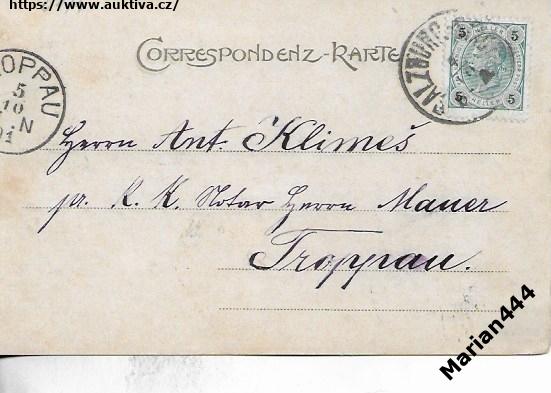 https://www.auktiva.cz/
CORRESPONDENZ-KARTE
5 5
5 5
SALZBURG
TROPPAU
5
10
N
01
Herrn Ant. Klimeš
pr. K. K. Notar Herrn Mauer
Troppau.
Marian444